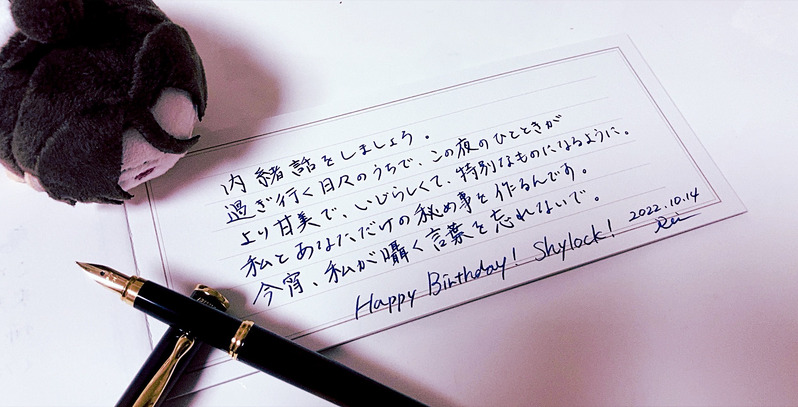 内緒話をしましょう。
過ぎ行く日々のうちで、この夜のひとときが
より甘美で、いじらしくて、特別なものになるように。
私とあなただけの秘め事を作るんです。
今宵、私が囁く言葉を忘れないで。
Happy Birthday! Shylock!
2022.10.14